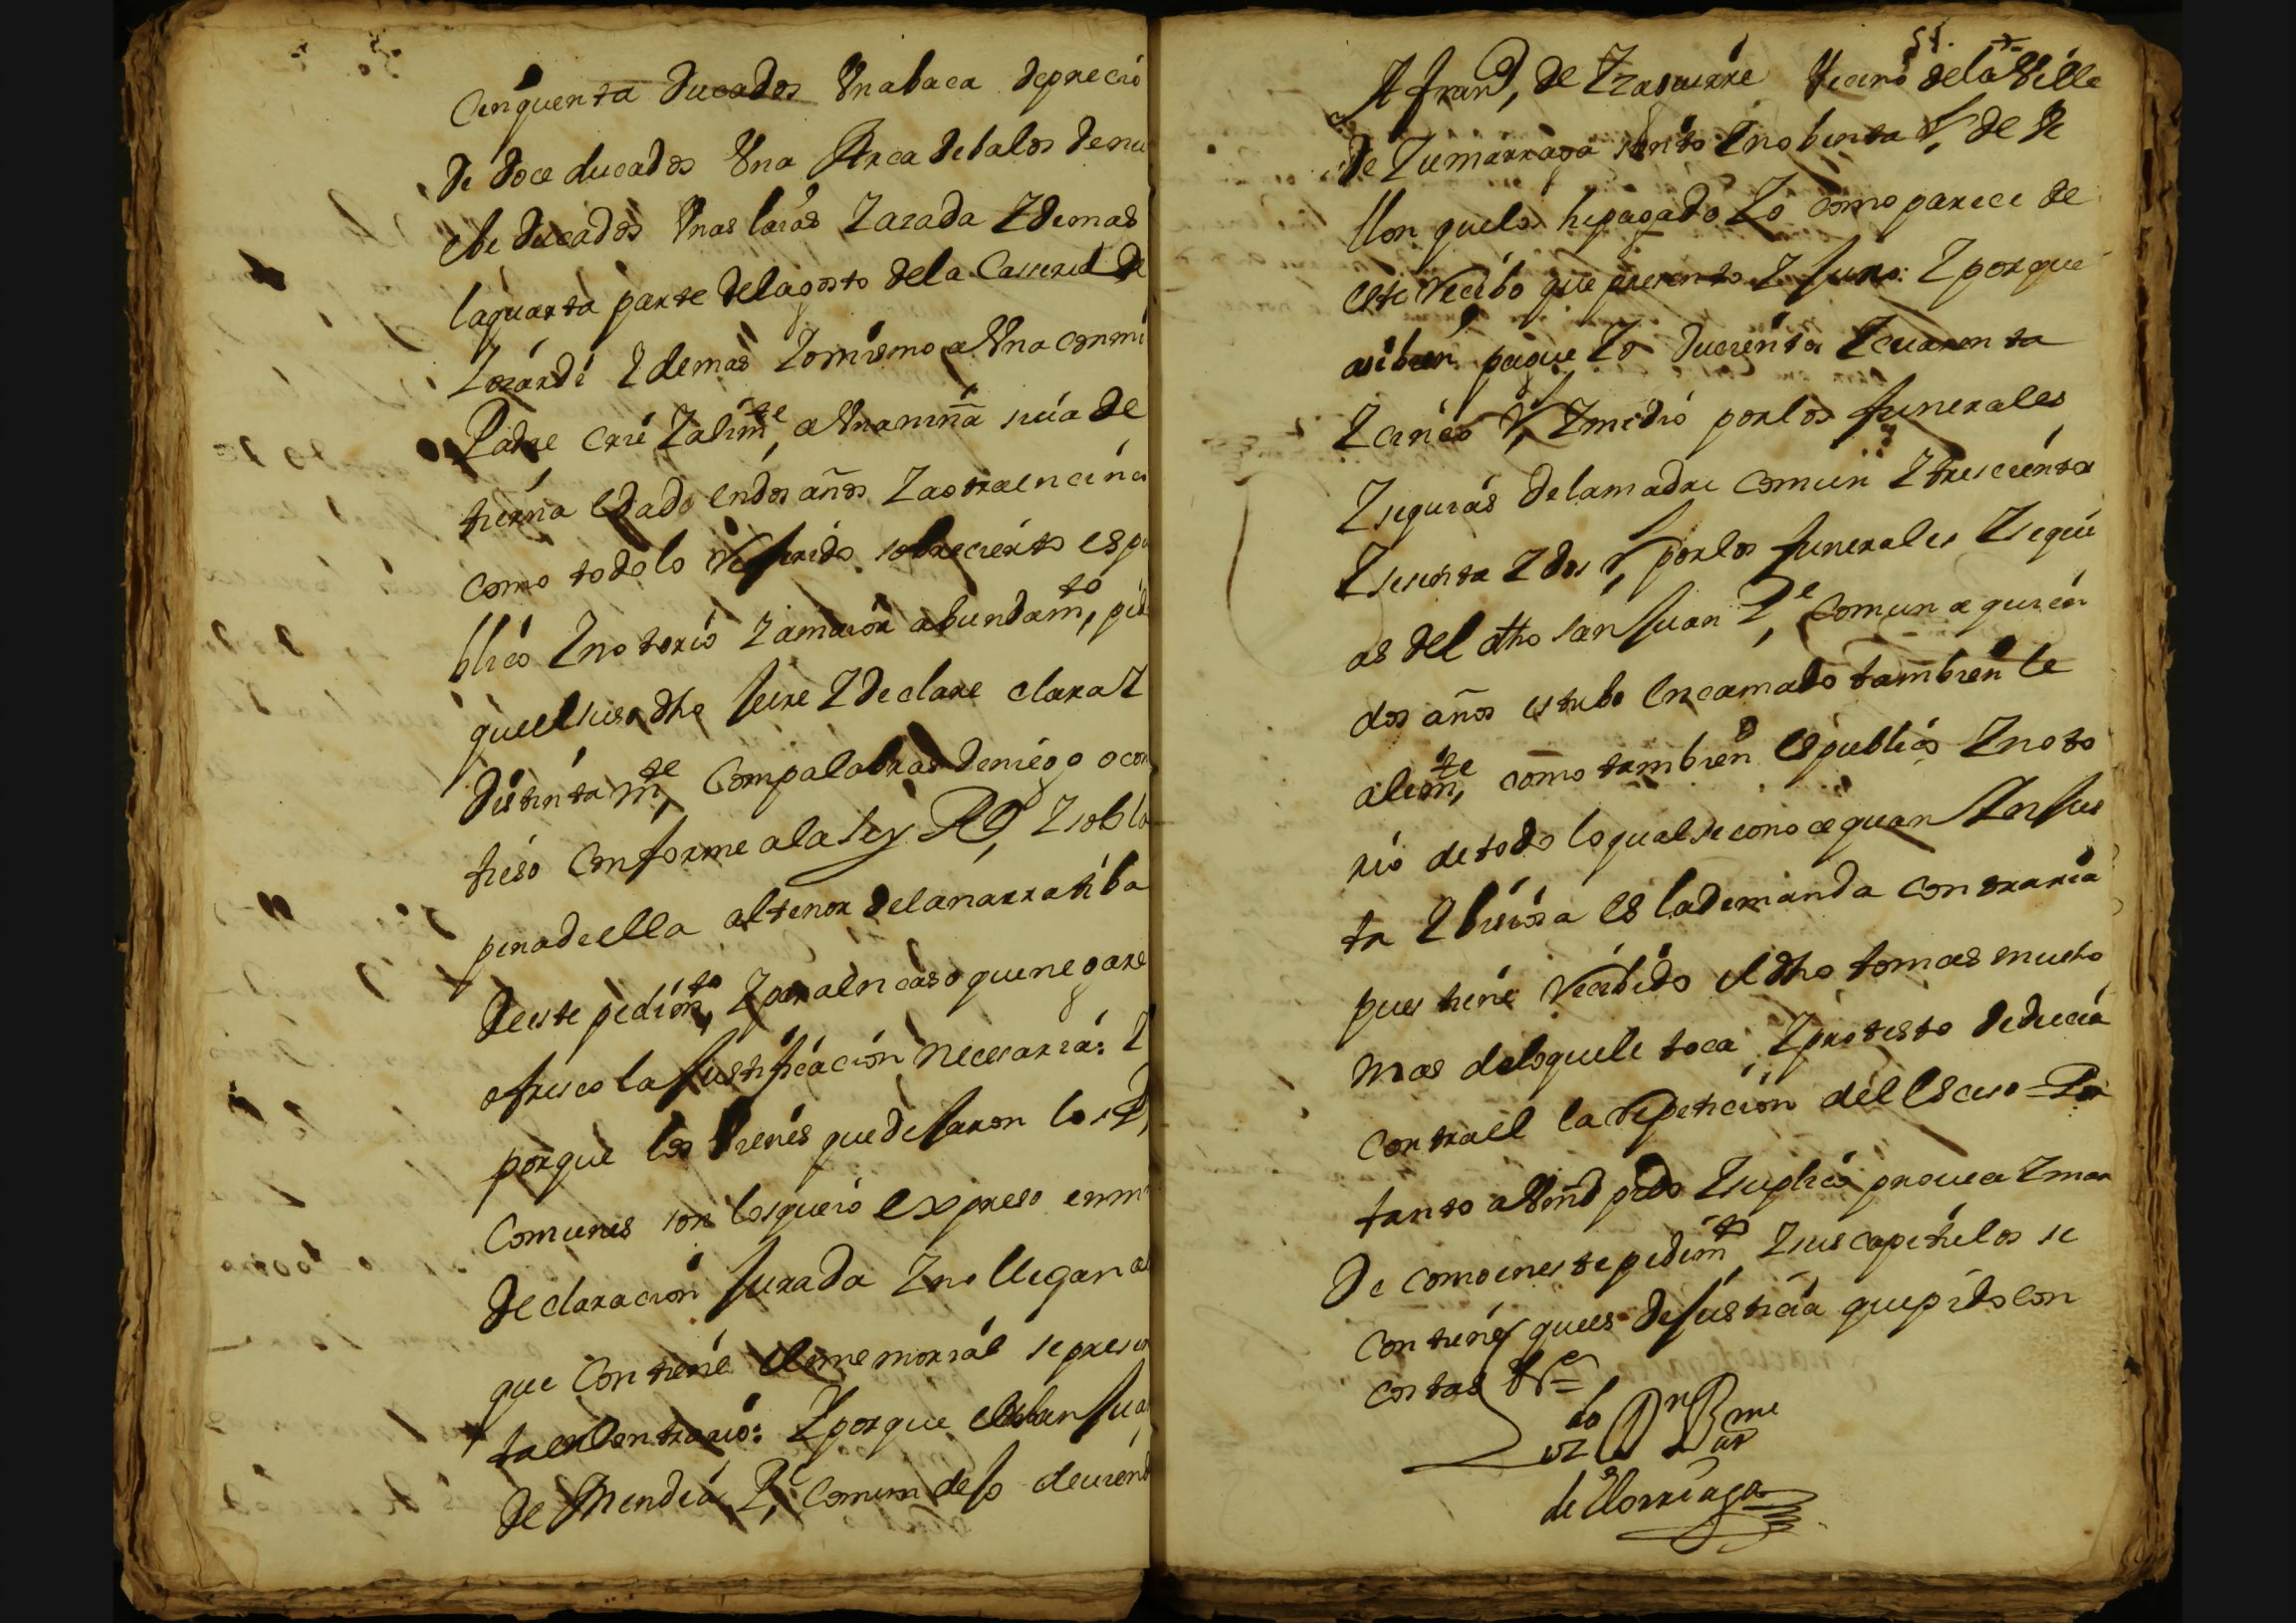 Cinquenta ducados Vna baca de precio
de doce ducados Vna Arca debalor de nu
ebe ducados Vnas laias Zazada Z demas
la quarta parte del agosto dela Casseria de
Zozardi Z demas Zo mismo a Vna con mi
Padre crié Z alimte, a Vna niña suia de
tierna edad en dos años Z a otra en cinco
como todo lo referido sobre cierto es pu
blico Z notorio Z a maior abundamto, pido
que el suso dho Jure Z declare clara Z
distintamte, Com palabras de niego o con
fieso Conforme a la ley Rl, Z so la
pena de ella al tenor dela narratiba
de este pedimto, Z para en caso que negare
ofresco la Justificacion necesaria: Z
porque los bienes que dejaron los Ps,
Comunes son los que io expreso en mi
declaracion Jurada Z no llegan a los
que Contiene el memorial se presen
ta en Contrario: Z porque el dho san Juan
de Mendia Pe, Comun dejo deuiendo
51.
A Frand, de Yzaguirre Vecino dela Villa
de Zumarraga ciento Z nobenta Rs, de be
llon que los he pagado Zo como parece de
este recibo que presento Z Juro: Z porque
asi bien pague Zo ducientos Z cuarenta
Z cinco Rs, Z medio por los funerales
Z seguras de la madre Comun Z trescientos
Z sesenta Z dos Rs, por los funerales Z segur
as del dho san Juan Pe, Comun a quien
dos años estubo encamado tambien le
alimte, como tambien es publico Z noto
rio de todo lo qual se conoce quan Injus
ta Z biciosa es la demanda contraria
pues tiene recibido el dho tomas mucho
mas de lo que le toca, Z protesto deducir
contra el la repeticion del exceso = Por
tanto a Vmd pido Z suplico prouea Z man
de como en este pedimto Z sus capitulos se
contiene que es de Justicia que pido con
costas Va =
Lizdo Dn Barme
de Elorriaga